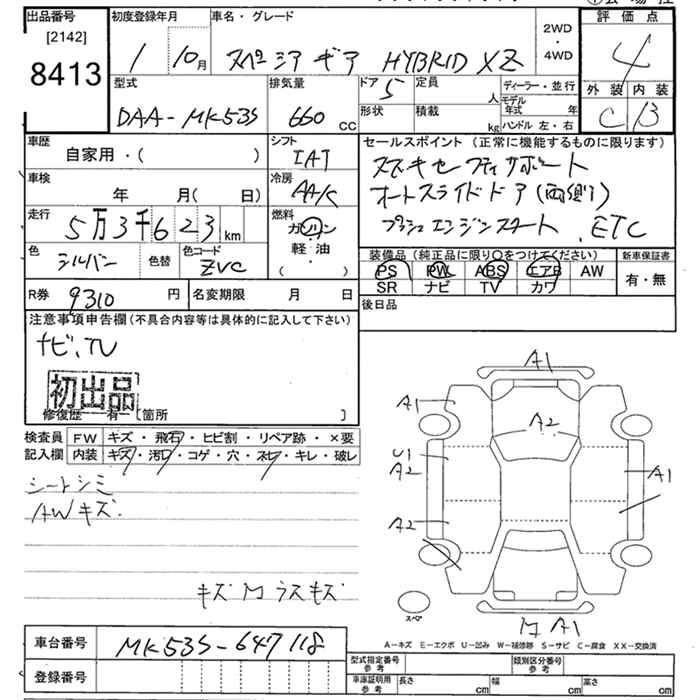 出品番号
[2142]
8413
初度登録年月
1 10月
車名・グレード
スペシア ギア HYBRID XZ
2WD
・
4WD
評価点
4
外装 内装
C B
型式
DAA-MK53S
排気量
660 CC
ドア 5
形状
定員
人
積載
kg
ディーラー・並行
モデル年式 年
ハンドル 左・右
車歴
自家用・( )
シフト
IAT
車検
年 月( 日)
冷房
AAC
走行
5万3千623 km
燃料
ガソリン
軽・油
( )
色
シルバー
色替
色コード
ZVC
R券
9310 円
名変期限 月 日
セールスポイント (正常に機能するものに限ります)
スズキセーフティサポート
オートスライドドア(両側)
プッシュエンジンスタート、ETC
装備品(純正品に限り○をつけてください)
新車保証書
PS PW ABS エアB AW
SR ナビ TV カワ
有・無
後日品
注意事項申告欄(不具合内容等は具体的に記入して下さい)
ナビ、TV
初出品
修復歴 有 [箇所 ]
検査員記入欄
FW キズ・飛石・ヒビ割・リペア跡・×要
内装 キズ・汚れ・コゲ・穴・ネレ・キレ・破レ
シートシミ
AWキズ
キズM ラスキズ
A1
A1
A2
U1
A2
A1
A2
スペア
M A1
A-キズ E-エクボ U-凹み W-補修跡 S-サビ C-腐食 XX-交換済
車台番号
MK53S-647118
登録番号
型式指定番号
参考
類別区分番号
参考
車庫証明用
参考
長さ cm
幅 cm
高さ cm